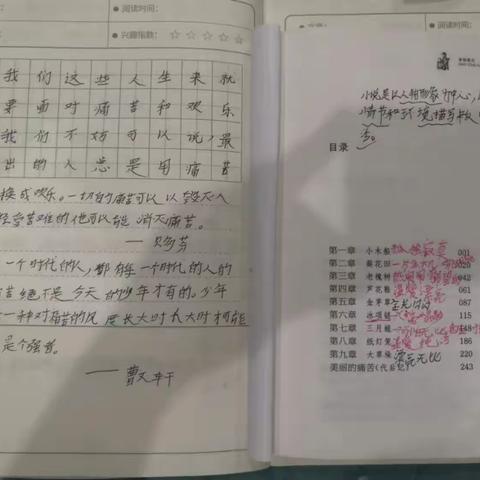 阅读时间:
兴趣指数: ☆☆☆☆☆
我们这些人生来就
要面对痛苦和欢乐
我们不妨可以说,最
出的人总是用痛苦
换成欢乐。一切的痛苦可以以毁灭人
经受苦难的他也可以能消灭痛苦。
一个时代的人,都有每一个时代的人的
苦绝不是今天的少年才有的。少年
一种对痛苦的风度长大时长大时才能
是个强者。
——曹文轩
阅读时间:
小说是以人物形象为中心,
情节和环境描写
目录
第一章 小木船 001
第二章 葵花田
第三章 老槐树
第四章 芦花鞋 061
第五章 金茅草 087
第六章 冰项链 115
第七章 三月蝗
第八章 纸灯笼 186
第九章 大草垛 漂亮无比 220
美丽的痛苦(代后记) 243